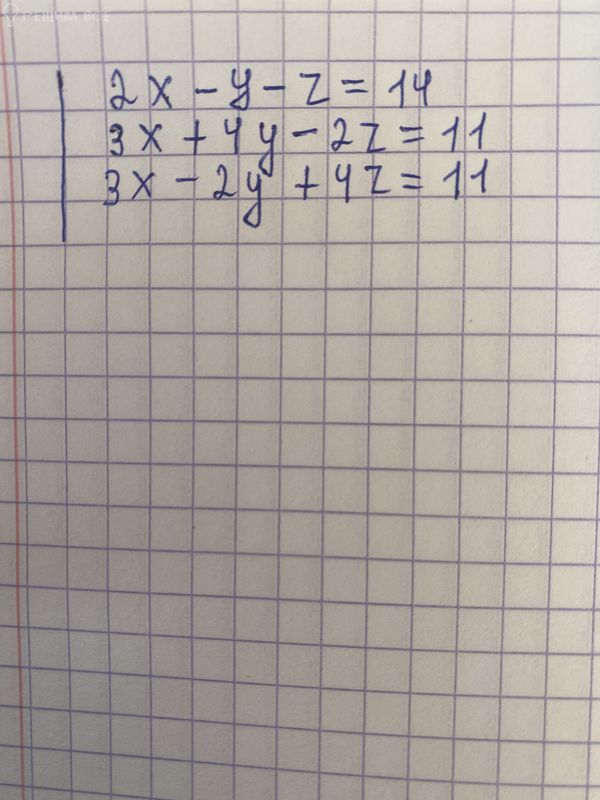 РЕШИЛА ВСЁ
2x - y - z = 14
3x + 4y - 2z = 11
3x - 2y + 4z = 11